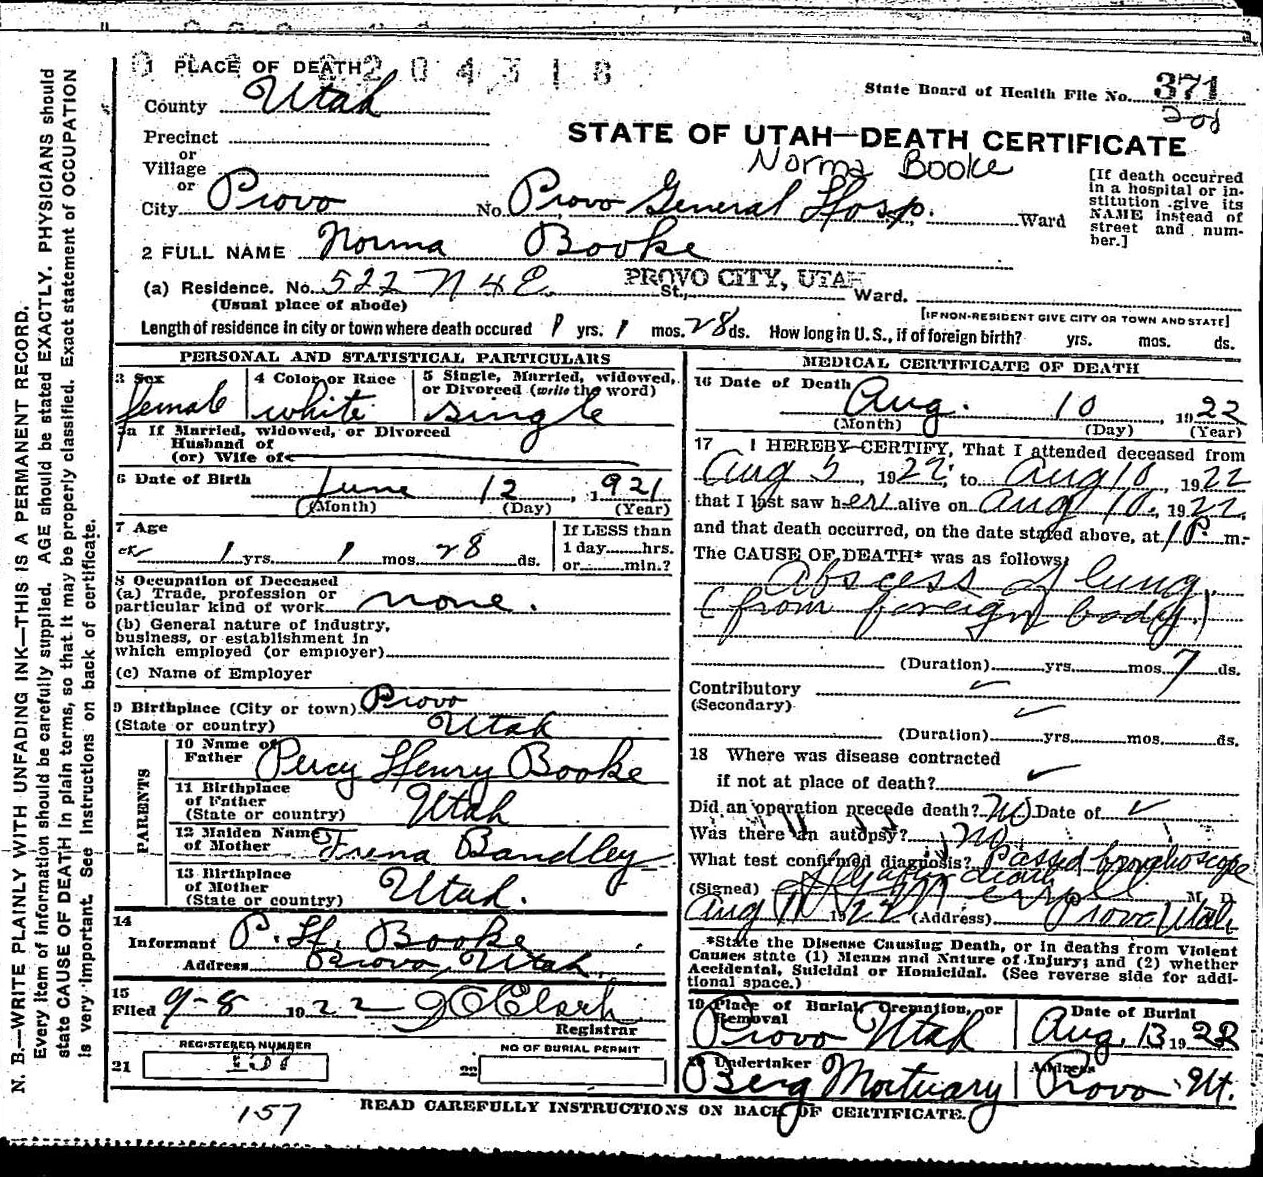 N. B.—WRITE PLAINLY WITH UNFADING INK—THIS IS A PERMANENT RECORD.
Every item of information should be carefully supplied. AGE should be stated EXACTLY. PHYSICIANS should
state CAUSE OF DEATH in plain terms, so that it may be properly classified. Exact statement of OCCUPATION
is very important. See Instructions on back of certificate.
204318
1 PLACE OF DEATH
State Board of Health File No. 371
County Utah
STATE OF UTAH—DEATH CERTIFICATE
Precinct
or
Village
or
Norma Booke
City Provo No. Provo General Hosp. Ward
[If death occurred
in a hospital or in-
stitution give its
NAME instead of
street and num-
ber.]
2 FULL NAME Norma Booke
(a) Residence. No. 522 N 4 E St., PROVO CITY, UTAH Ward.
(Usual place of abode)
[IF NON-RESIDENT GIVE CITY OR TOWN AND STATE]
Length of residence in city or town where death occured 1 yrs. 1 mos. 28 ds. How long in U.S., if of foreign birth? yrs. mos. ds.
PERSONAL AND STATISTICAL PARTICULARS
3 Sex
female
4 Color or Race
white
5 Single, Married, widowed,
or Divorced (write the word)
single
5a If Married, widowed, or Divorced
Husband of
(or) Wife of
6 Date of Birth June 12, 1921
(Month) (Day) (Year)
7 Age
1 yrs. 1 mos. 28 ds.
If LESS than
1 day hrs.
or min.?
8 Occupation of Deceased
(a) Trade, profession or
particular kind of work none.
(b) General nature of industry,
business, or establishment in
which employed (or employer)
(c) Name of Employer
9 Birthplace (City or town) Provo
(State or country) Utah
PARENTS
10 Name of
Father Percy Henry Booke
11 Birthplace
of Father
(State or country) Utah
12 Maiden Name
of Mother Frena Bandley
13 Birthplace
of Mother
(State or country) Utah.
14
Informant P. H. Booke
Address Provo, Utah.
15
Filed 9-8 1922 Clark
Registrar
REGISTERED NUMBER
21
NO OF BURIAL PERMIT
22
157
MEDICAL CERTIFICATE OF DEATH
16 Date of Death Aug. 10, 1922
(Month) (Day) (Year)
17 I HEREBY CERTIFY, That I attended deceased from
Aug 5, 1922, to Aug 10, 1922
that I last saw her alive on Aug 10, 1922.
and that death occurred, on the date stated above, at 1 P. m.
The CAUSE OF DEATH* was as follows:
Abscess of lung
(from foreign body)
(Duration) yrs. mos. 7 ds.
Contributory
(Secondary)
(Duration) yrs. mos. ds.
18 Where was disease contracted
if not at place of death?
Did an operation precede death? No Date of
Was there an autopsy? No
What test confirmed diagnosis? Passed bronchoscope
(Signed) M. D.
Aug 1922 (Address) Provo Utah
*State the Disease Causing Death, or in deaths from Violent
Causes state (1) Means and Nature of Injury; and (2) whether
Accidental, Suicidal or Homicidal. (See reverse side for addi-
tional space.)
19 Place of Burial, Cremation, or
Removal
Provo Utah
Date of Burial
Aug. 13 1922
Undertaker
Berg Mortuary
Address
Provo Ut.
READ CAREFULLY INSTRUCTIONS ON BACK OF CERTIFICATE.